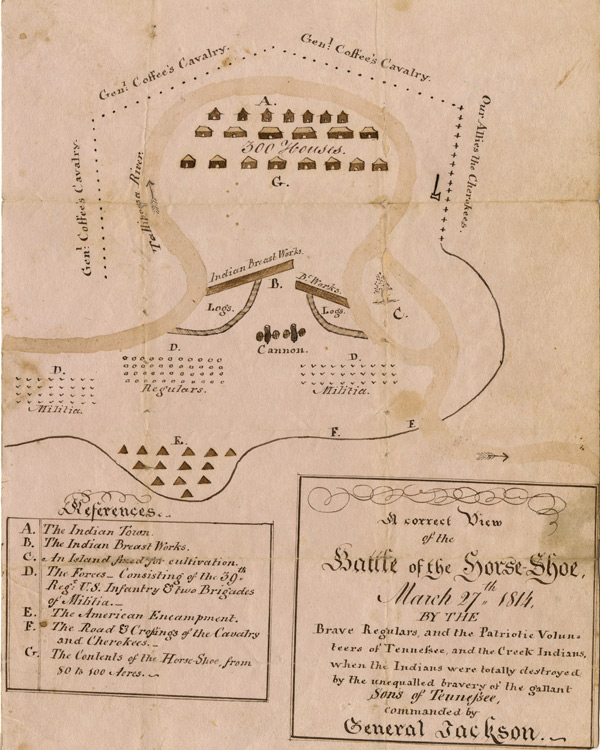 Genl. Coffee's Cavalry.
Genl. Coffee's Cavalry.
Genl. Coffee's Cavalry.
Our Allies the Cherokees.
A.
300 Houses.
G.
Indian Breast Works.
B.
Bt. Works.
Logs.
Logs.
C.
Cannon.
D.
Regulars.
D.
Militia.
D.
Militia.
E.
F.
F.
References.
A. The Indian Town.
B. The Indian Breast Works.
C. An Island for cultivation.
D. The Forces_ Consisting of the 39th
Regt. U.S. Infantry & two Brigades
of Militia._
E. The American Encampment.
F. The Road & Crossings of the Cavalry
and Cherokees._
G. The Contents of the Horse-Shoe, from
80 to 100 Acres._
A correct View
of the
Battle of the Horse-Shoe,
March 27th 1814,
BY THE
Brave Regulars, and the Patriotic Volun=
teers of Tennessee, and the Creek Indians,
when the Indians were totally destroyed
by the unequalled bravery of the gallant
Sons of Tennessee,
commanded by
General Jackson._